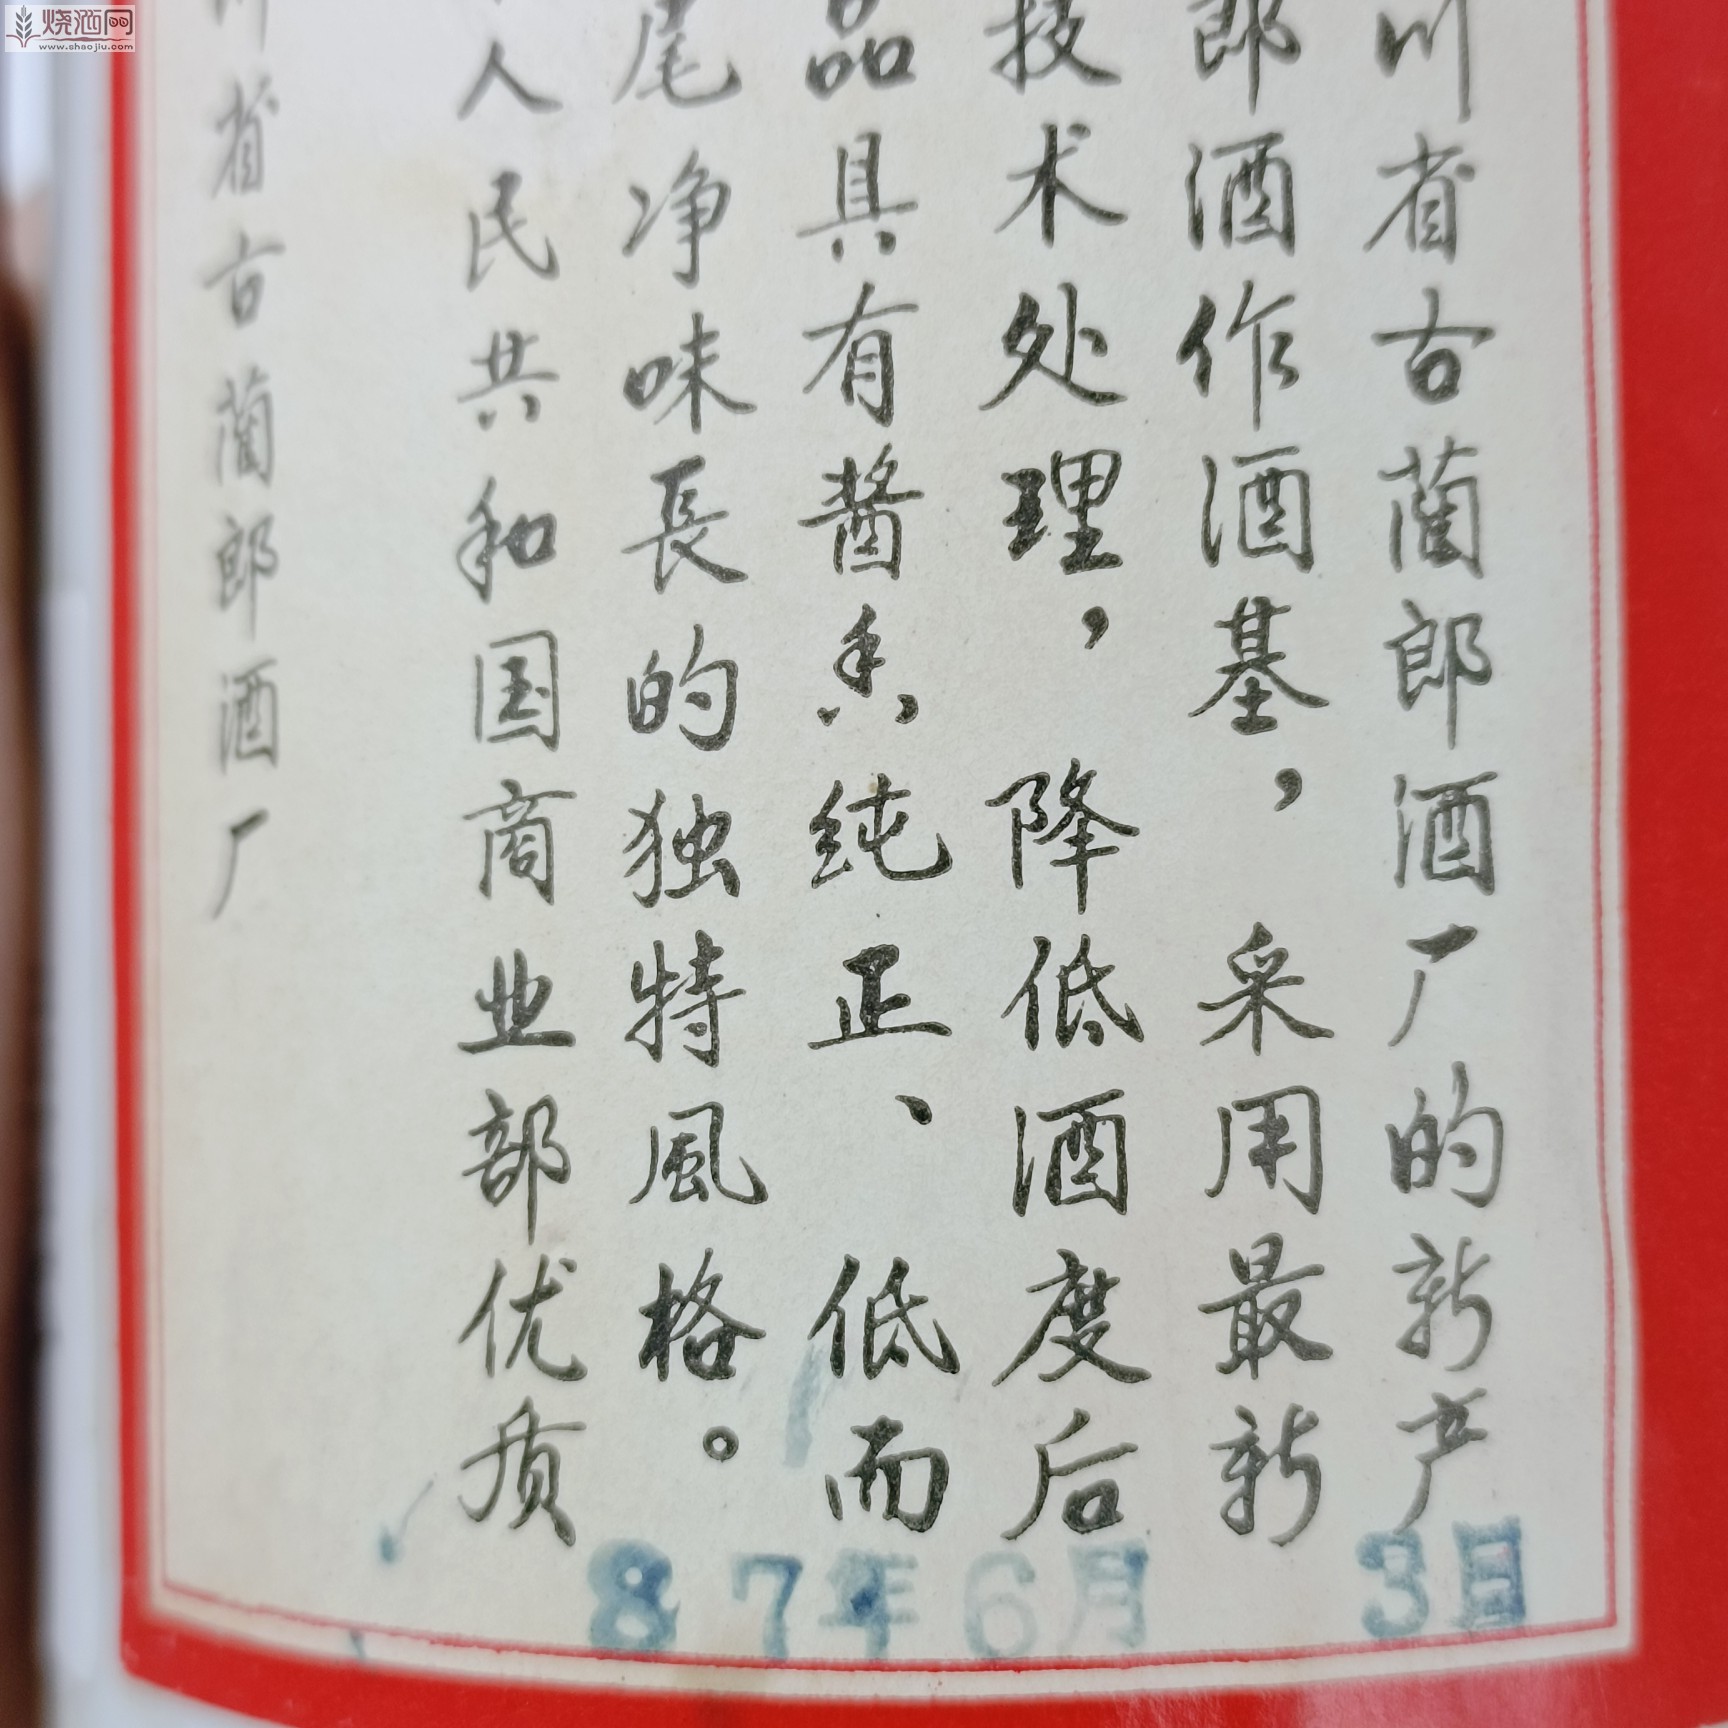 烧酒网
www.shaojiu.com
川省古蔺郎酒厂的新产
郎酒作酒基，采用最新
技术处理，降低酒度后
品具有酱香纯正、低而
尾净味長的独特風格。
人民共和国商业部优质
川省古蔺郎酒厂
87年6月3日